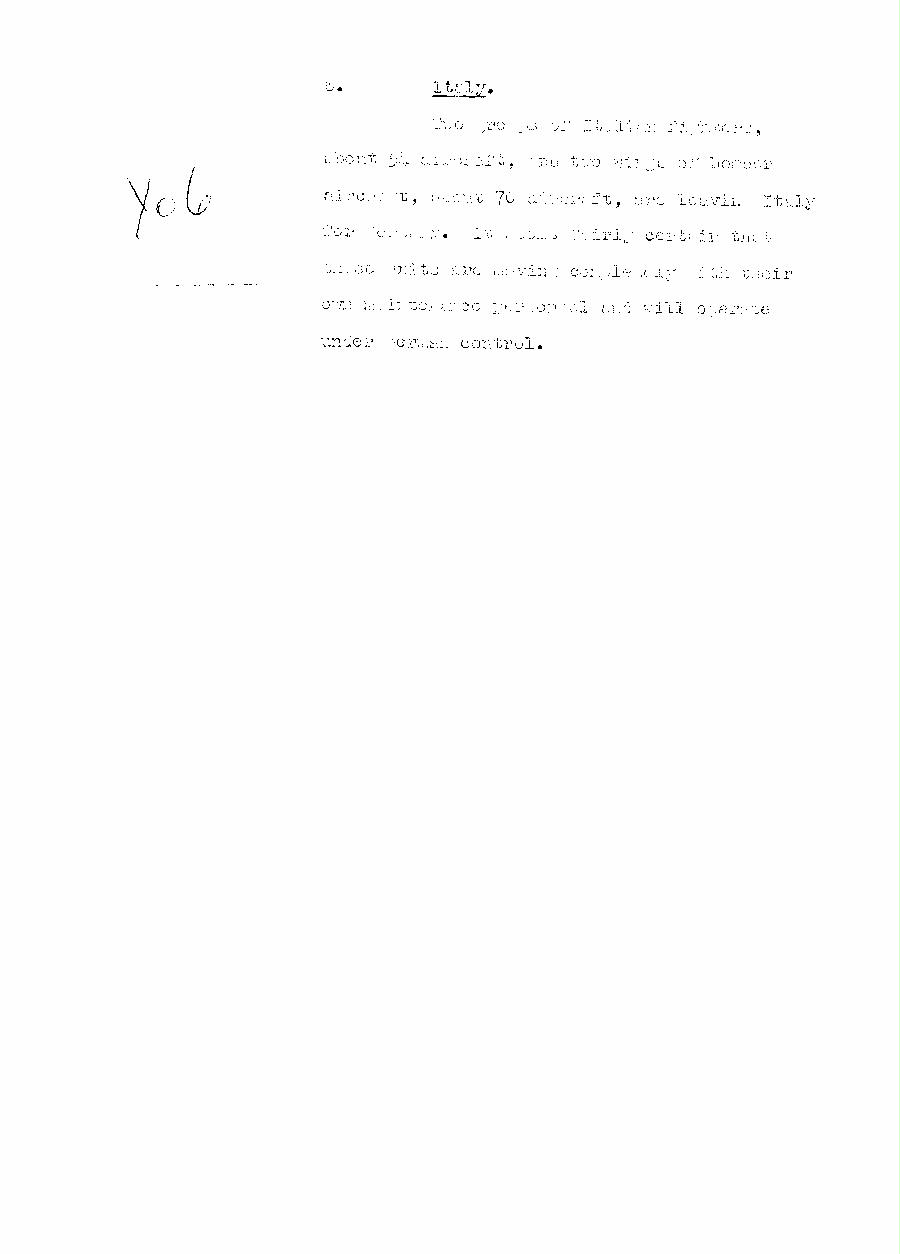 Italy.
Two groups of Italian fighters,
about aircraft, and two wings of bomber
aircraft, about 70 aircraft, are leaving Italy
for It seems fairly certain that
these units are moving complete with their
own maintenance personnel and will operate
under German control.
Y06